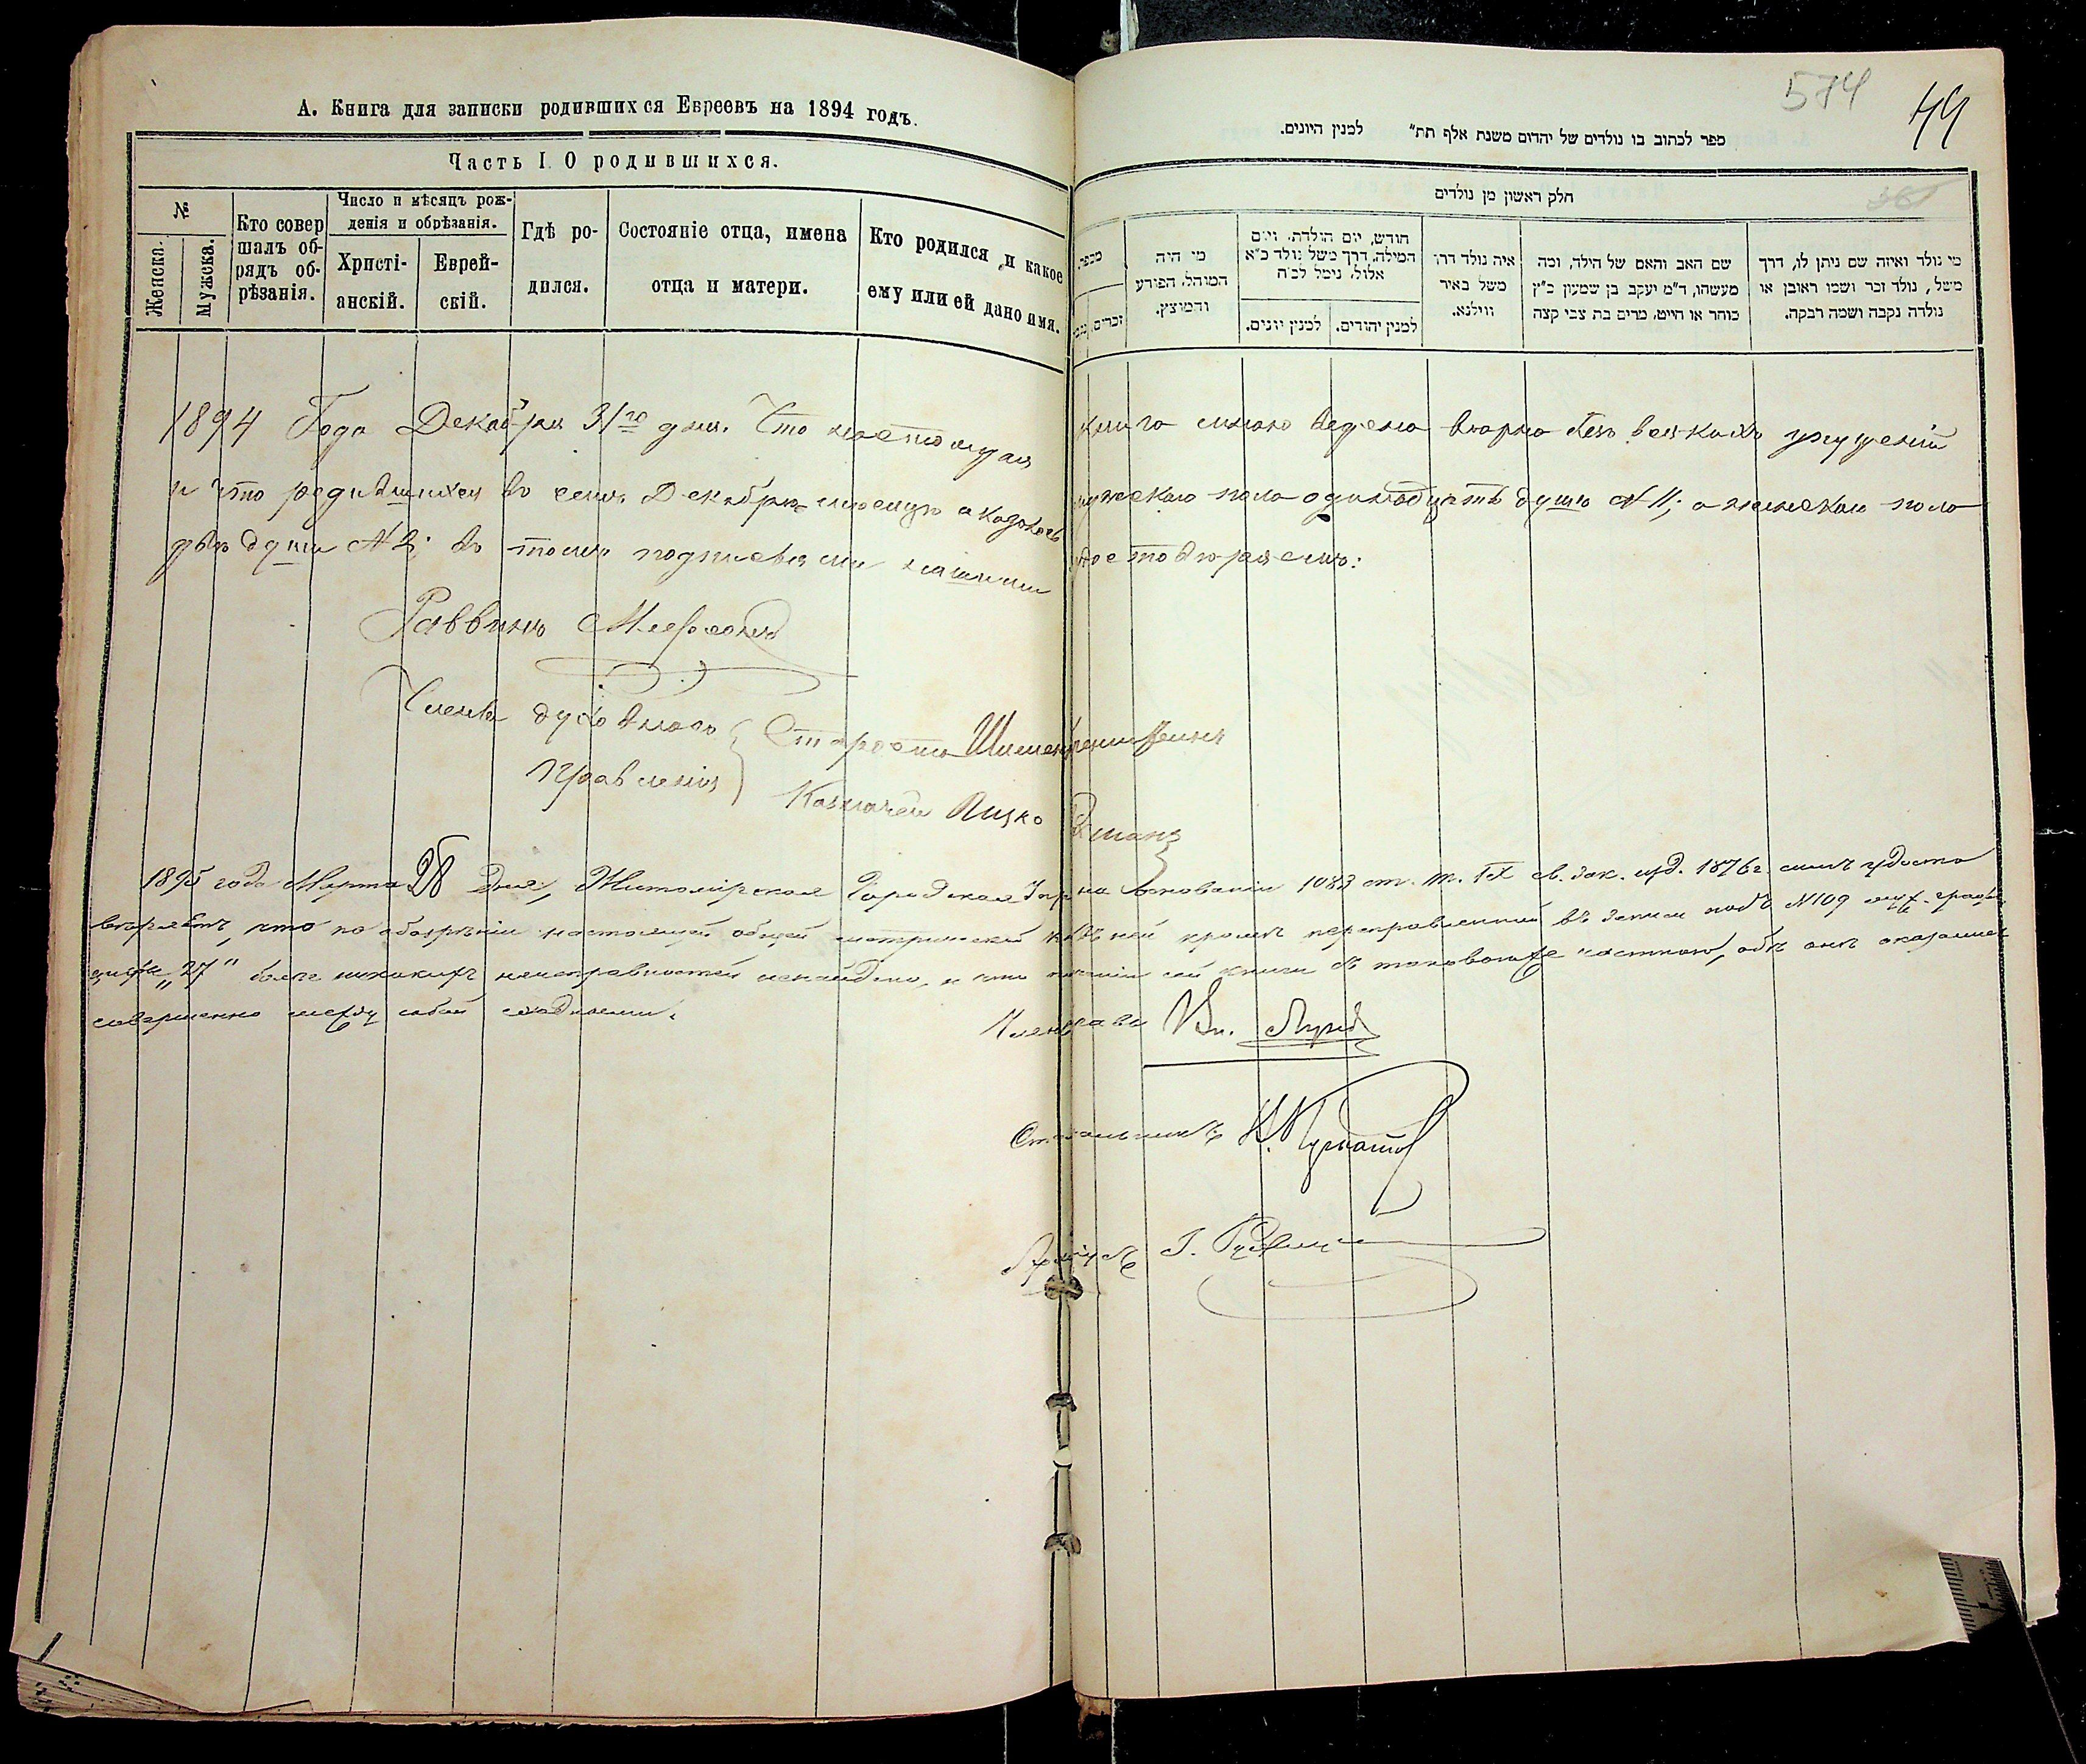 А. Книга для записки родившихся Евреевъ на 1894 годъ.
Часть I. О родившихся.
№
Женска.
Мужска.
Кто совершалъ обрядъ обрѣзанія.
Число и мѣсяцъ рожденія и обрѣзанія.
Христіанскій.
Еврейскій.
Гдѣ родился.
Состояніе отца, имена отца и матери.
Кто родился и какое ему или ей дано имя.
574
44
ספר לכתוב בו נולדים של יהדום משנת אלף תת״ למנין היונים.
חלק ראשון מן נולדים
מי נולד ואיזה שם ניתן לו, דרך
משל, נולד זכר ושמו ראובן או
נולדה נקבה ושמה רבקה.
שם האב והאם של הילד, ומה
מעשהו, ד״מ יעקב בן שמעון כ״ץ
סוחר או חייט, מרים בת צבי קצה
איה נולד דרך
משל באיר
ווילנא.
חודש, יום הולדת, ויום
המילה, דרך משל נולד כ״א
אלול, נימל לכ״ח
למנין יהודים.
למנין יונים.
מי היה
המוהל, הפורע
והמוצץ.
מספר
זכרים
1894 Года Декабря 31го дня. Что настоящая книга мною ведена вѣрно безъ всякихъ упущеній
и что родившихся во семъ Декабрѣ мѣсяцѣ оказалось мужескаго пола одинадцать душъ № 11; а женскаго пола
двѣ души № 2; въ томъ подписями нашими удостовѣряемъ:
Раввинъ
Члены духовнаго Правленія
Староста
Казначей Ицко
1895 года Марта 28 Дня, Житомірская Городская Управа на основаніи 1083 ст. т. IX св. зак. изд. 1876 г. симъ удосто
вѣряетъ, что по обозрѣніи настоящей общей метрической въ ней кромѣ переправленной въ записи подъ № 109 муж. графы
цифры „27" болѣе никакихъ неисправностей не найдено, и что по сей книги съ таковою же частною, обѣ онѣ оказались
совершенно между собой сходными.
Членъ Управы
Столоначальникъ